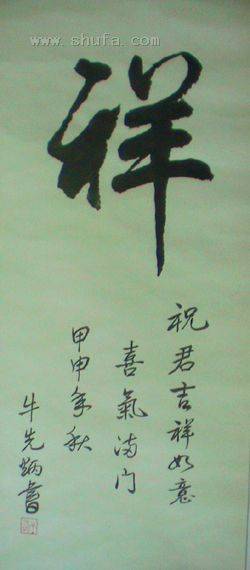 www.shufa.com
祥
祝君吉祥如意
喜氣满门
甲申年秋
牛先炳書